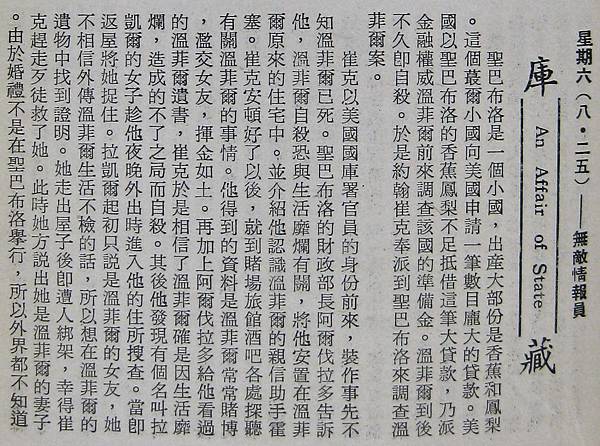 星期六(八·二五)——無敵情報員
庫藏
An Affair of State
聖巴布洛是一個小國,出産大部份是香蕉和鳳梨
。這個蕞爾小國向美國申請一筆數目龐大的貸款。美
國以聖巴布洛的香蕉鳳梨不足抵借這筆大貸款,乃派
金融權威溫菲爾前來調查該國的準備金。溫菲爾到後
不久即自殺。於是約翰崔克奉派到聖巴布洛來調查溫
菲爾案。
崔克以美國國庫署官員的身份前來,裝作事先不
知溫菲爾已死。聖巴布洛的財政部長阿爾伐拉多告訴
他,溫菲爾自殺恐與生活靡爛有關,將他安置在溫菲
爾原來的住宅中。並介紹他認識溫菲爾的親信助手霍
塞。崔克安頓好了以後,就到賭場旅館酒吧各處探聽
有關溫菲爾的事情。他得到的資料是溫菲爾常常賭博
,濫交女友,揮金如土。再加上阿爾伐拉多給他看過
的溫菲爾遺書,崔克於是相信了溫菲爾確是因生活靡
爛,造成的不了之局而自殺。其後他發現有個名叫拉
凱爾的女子趁他夜晚外出時進入他的住所搜查。當即
返屋將她捉住。拉凱爾起初只說是溫菲爾的女友,她
不相信外傳溫菲爾生活不檢的話,所以想在溫菲爾的
遺物中找到證明。她走出屋子後即遭人綁架,幸得崔
克趕走歹徒救了她。此時她方說出她是溫菲爾的妻子
。由於婚禮不是在聖巴布洛舉行,所以外界都不知道